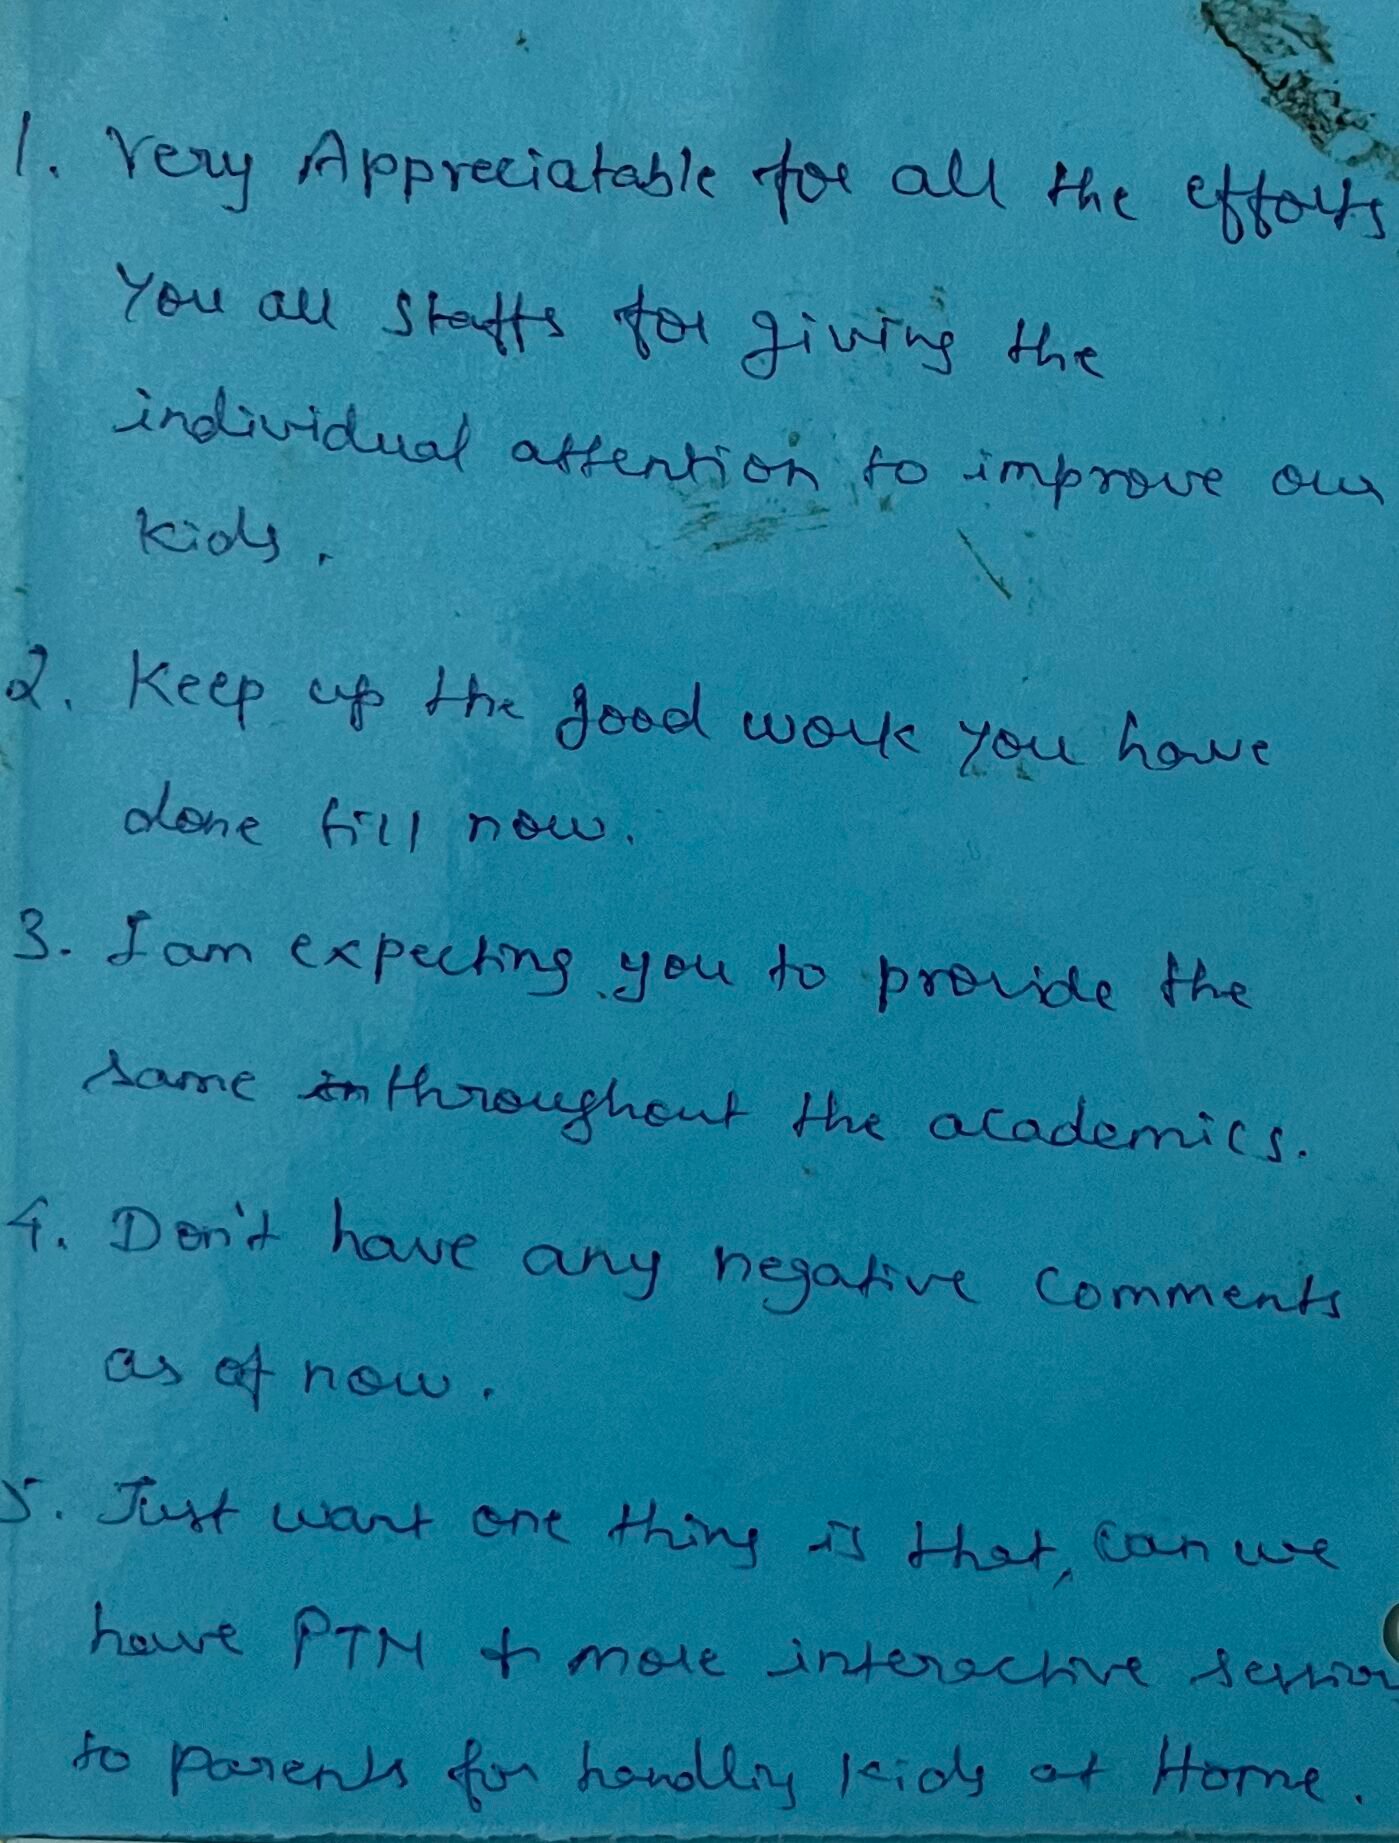 1. Very Appreciatable for all the efforts
You all staffs for giving the
individual attention to improve our
kids.
2. Keep up the good work you have
done till now.
3. I am expecting you to provide the
same in throughout the academics.
4. Don't have any negative comments
as of now.
5. Just want one thing is that, can we
have PTM & more interactive session
to parents for handling kids at Home.